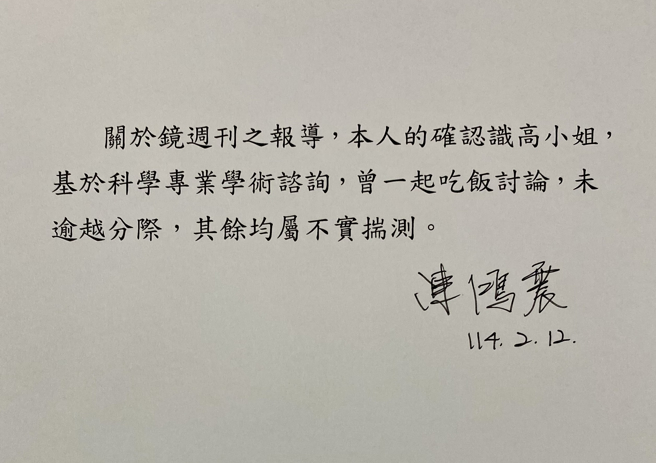 關於鏡週刊之報導，本人的確認識高小姐，
基於科學專業學術諮詢，曾一起吃飯討論，未
逾越分際，其餘均屬不實揣測。
陳鴻震
114. 2. 12.